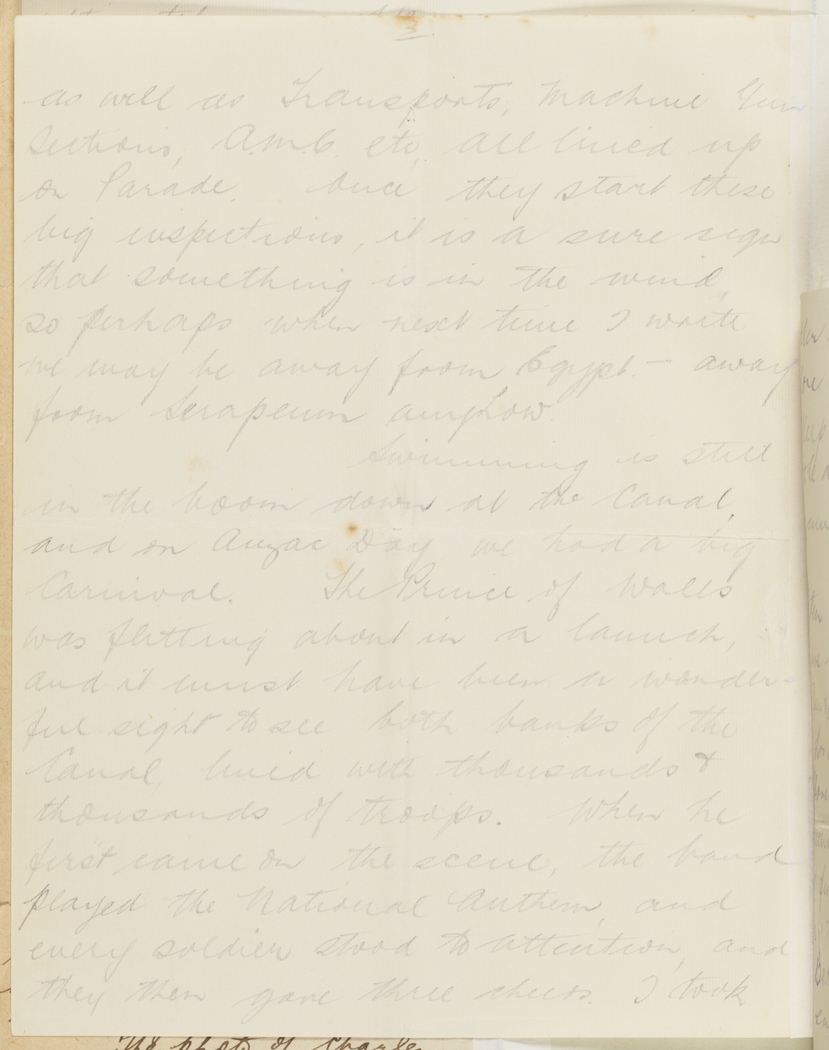 3.
as well as Transports, Machine Gun
Sections, A.M.C. etc, all lined up
on Parade. Once they start these
big inspections, it is a sure sign
that something is in the wind,
so perhaps when next time I write
we may be away from Egypt. – away
from Serapeum anyhow.
Swimming is still
in the boom down at the Canal,
and on Anzac Day we had a big
Carnival. The Prince of Wales
was flitting about in a launch,
and it must have been a wonder-
ful sight to see both banks of the
Canal, lined with thousands &
thousands of troops. When he
first came on the scene, the band
played the National Anthem, and
every soldier stood to attention, and
they then gave three cheers. I took
photo of Charlie